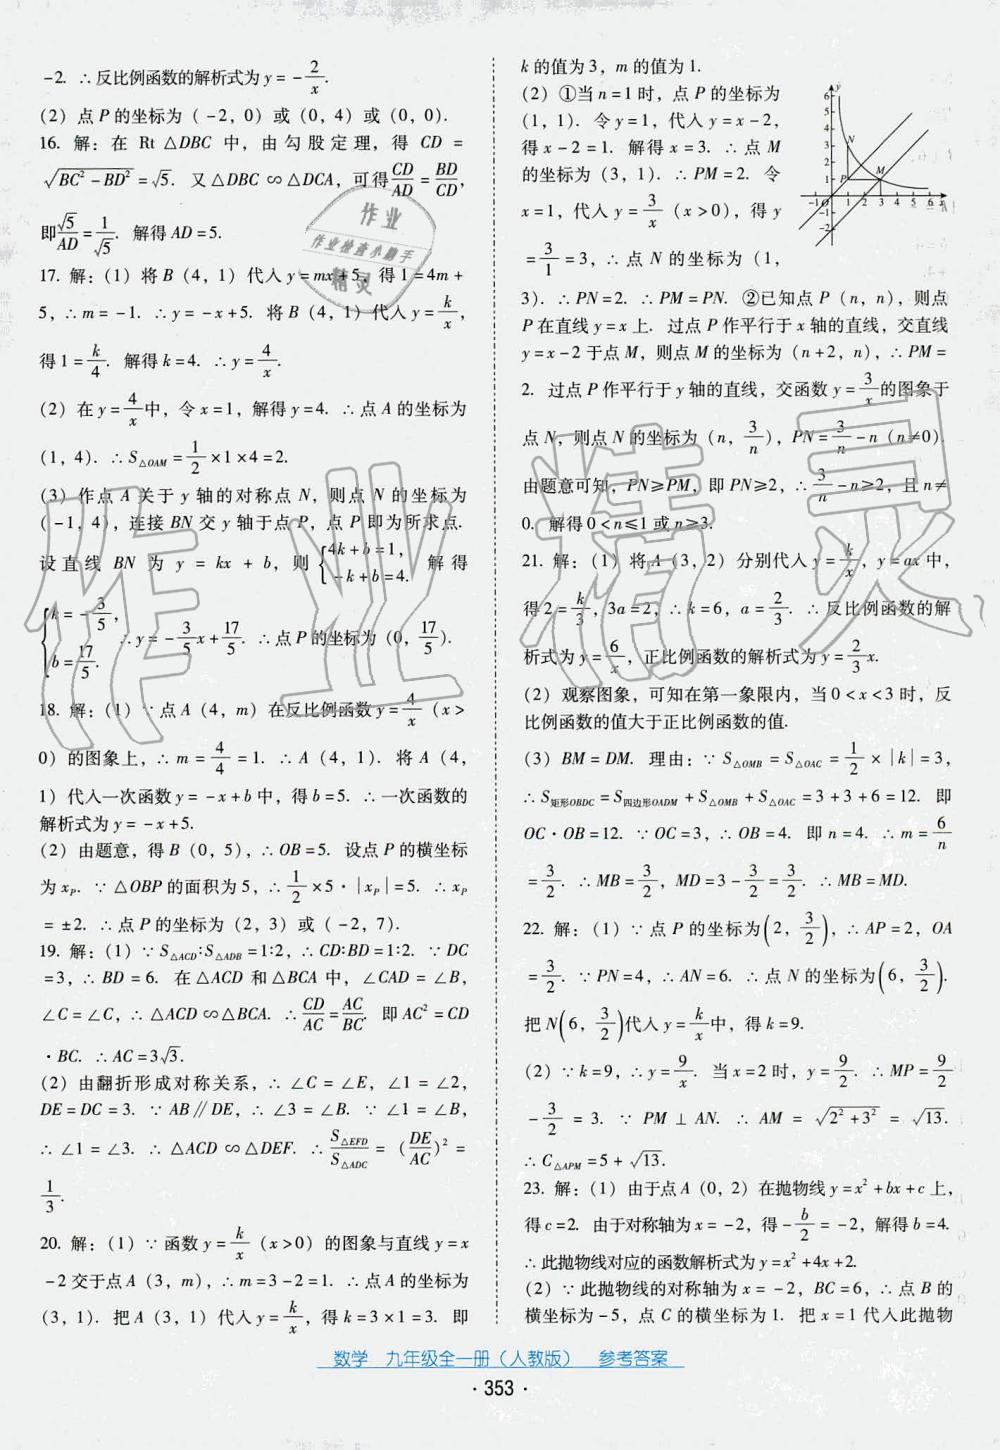 -2. ∴反比例函数的解析式为y=-2/x.
(2) 点P的坐标为(-2,0)或(0,4)或(0,0).
16. 解:在 Rt△DBC 中,由勾股定理,得 CD=
√(BC²-BD²)=√5. 又△DBC∽△DCA,可得CD/AD=BD/CD,
即√5/AD=1/√5. 解得AD=5.
17. 解:(1) 将B(4,1)代入y=mx+5,得1=4m+
5,∴m=-1. ∴y=-x+5. 将B(4,1)代入y=k/x,
得1=k/4. 解得k=4. ∴y=4/x.
(2) 在y=4/x中,令x=1,解得y=4. ∴点A的坐标为
(1,4). ∴S△OAM=1/2×1×4=2.
(3) 作点A关于y轴的对称点N,则点N的坐标为
(-1,4),连接BN交y轴于点P,点P即为所求点.
设直线BN为y=kx+b,则{4k+b=1, -k+b=4. 解得
{k=-3/5, b=17/5. ∴y=-3/5x+17/5. ∴点P的坐标为(0,17/5).
18. 解:(1)∵点A(4,m)在反比例函数y=4/x(x>
0)的图象上,∴m=4/4=1. ∴A(4,1). 将A(4,
1)代入一次函数y=-x+b中,得b=5. ∴一次函数的
解析式为y=-x+5.
(2) 由题意,得B(0,5),∴OB=5. 设点P的横坐标
为xP. ∵△OBP的面积为5,∴1/2×5·|xP|=5. ∴xP
=±2. ∴点P的坐标为(2,3)或(-2,7).
19. 解:(1)∵S△ACD∶S△ADB=1∶2,∴CD∶BD=1∶2. ∵DC
=3,∴BD=6. 在△ACD和△BCA中,∠CAD=∠B,
∠C=∠C,∴△ACD∽△BCA. ∴CD/AC=AC/BC. 即AC²=CD
·BC. ∴AC=3√3.
(2) 由翻折形成对称关系,∴∠C=∠E,∠1=∠2,
DE=DC=3. ∵AB∥DE,∴∠3=∠B. ∵∠1=∠B,
∴∠1=∠3. ∴△ACD∽△DEF. ∴S△EFD/S△ADC=(DE/AC)²=
1/3.
20. 解:(1)∵函数y=k/x(x>0)的图象与直线y=x
-2交于点A(3,m),∴m=3-2=1. ∴点A的坐标为
(3,1). 把A(3,1)代入y=k/x,得k=3×1=3. 即
k的值为3,m的值为1.
(2) ①当n=1时,点P的坐标为
(1,1). 令y=1,代入y=x-2,
得x-2=1. 解得x=3. ∴点M
的坐标为(3,1). ∴PM=2. 令
x=1,代入y=3/x(x>0),得y
=3/1=3,∴点N的坐标为(1,
3). ∴PN=2. ∴PM=PN. ②已知点P(n,n),则点
P在直线y=x上. 过点P作平行于x轴的直线,交直线
y=x-2于点M,则点M的坐标为(n+2,n),∴PM=
2. 过点P作平行于y轴的直线,交函数y=3/x的图象于
点N,则点N的坐标为(n,3/n),PN=3/n-n(n≠0).
由题意可知,PN≥PM,即PN≥2,∴3/n-n≥2,且n≠
0. 解得0<n≤1或n≥3.
21. 解:(1) 将A(3,2)分别代入y=k/x,y=ax中,
得2=k/3,3a=2,∴k=6,a=2/3. ∴反比例函数的解
析式为y=6/x,正比例函数的解析式为y=2/3x.
(2) 观察图象,可知在第一象限内,当0<x<3时,反
比例函数的值大于正比例函数的值.
(3) BM=DM. 理由:∵S△OMB=S△OAC=1/2×|k|=3,
∴S矩形OBDC=S四边形OADM+S△OMB+S△OAC=3+3+6=12. 即
OC·OB=12. ∵OC=3,∴OB=4. 即n=4. ∴m=6/n
=3/2. ∴MB=3/2,MD=3-3/2=3/2. ∴MB=MD.
22. 解:(1)∵点P的坐标为(2,3/2),∴AP=2,OA
=3/2. ∵PN=4,∴AN=6. ∴点N的坐标为(6,3/2).
把N(6,3/2)代入y=k/x中,得k=9.
(2)∵k=9,∴y=9/x. 当x=2时,y=9/2. ∴MP=9/2
-3/2=3. ∵PM⊥AN. ∴AM=√(2²+3²)=√13.
∴C△APM=5+√13.
23. 解:(1) 由于点A(0,2)在抛物线y=x²+bx+c上,
得c=2. 由于对称轴为x=-2,得-b/2=-2,解得b=4.
∴此抛物线对应的函数解析式为y=x²+4x+2.
(2)∵此抛物线的对称轴为x=-2,BC=6,∴点B的
横坐标为-5,点C的横坐标为1. 把x=1代入此抛物
y
6
5
4
3
2
1
N
P
M
-1 O 1 2 3 4 5 6 x
-1
-2
作业
作业检查小助手
精灵
作业精灵
数学 九年级全一册(人教版) 参考答案
·353·